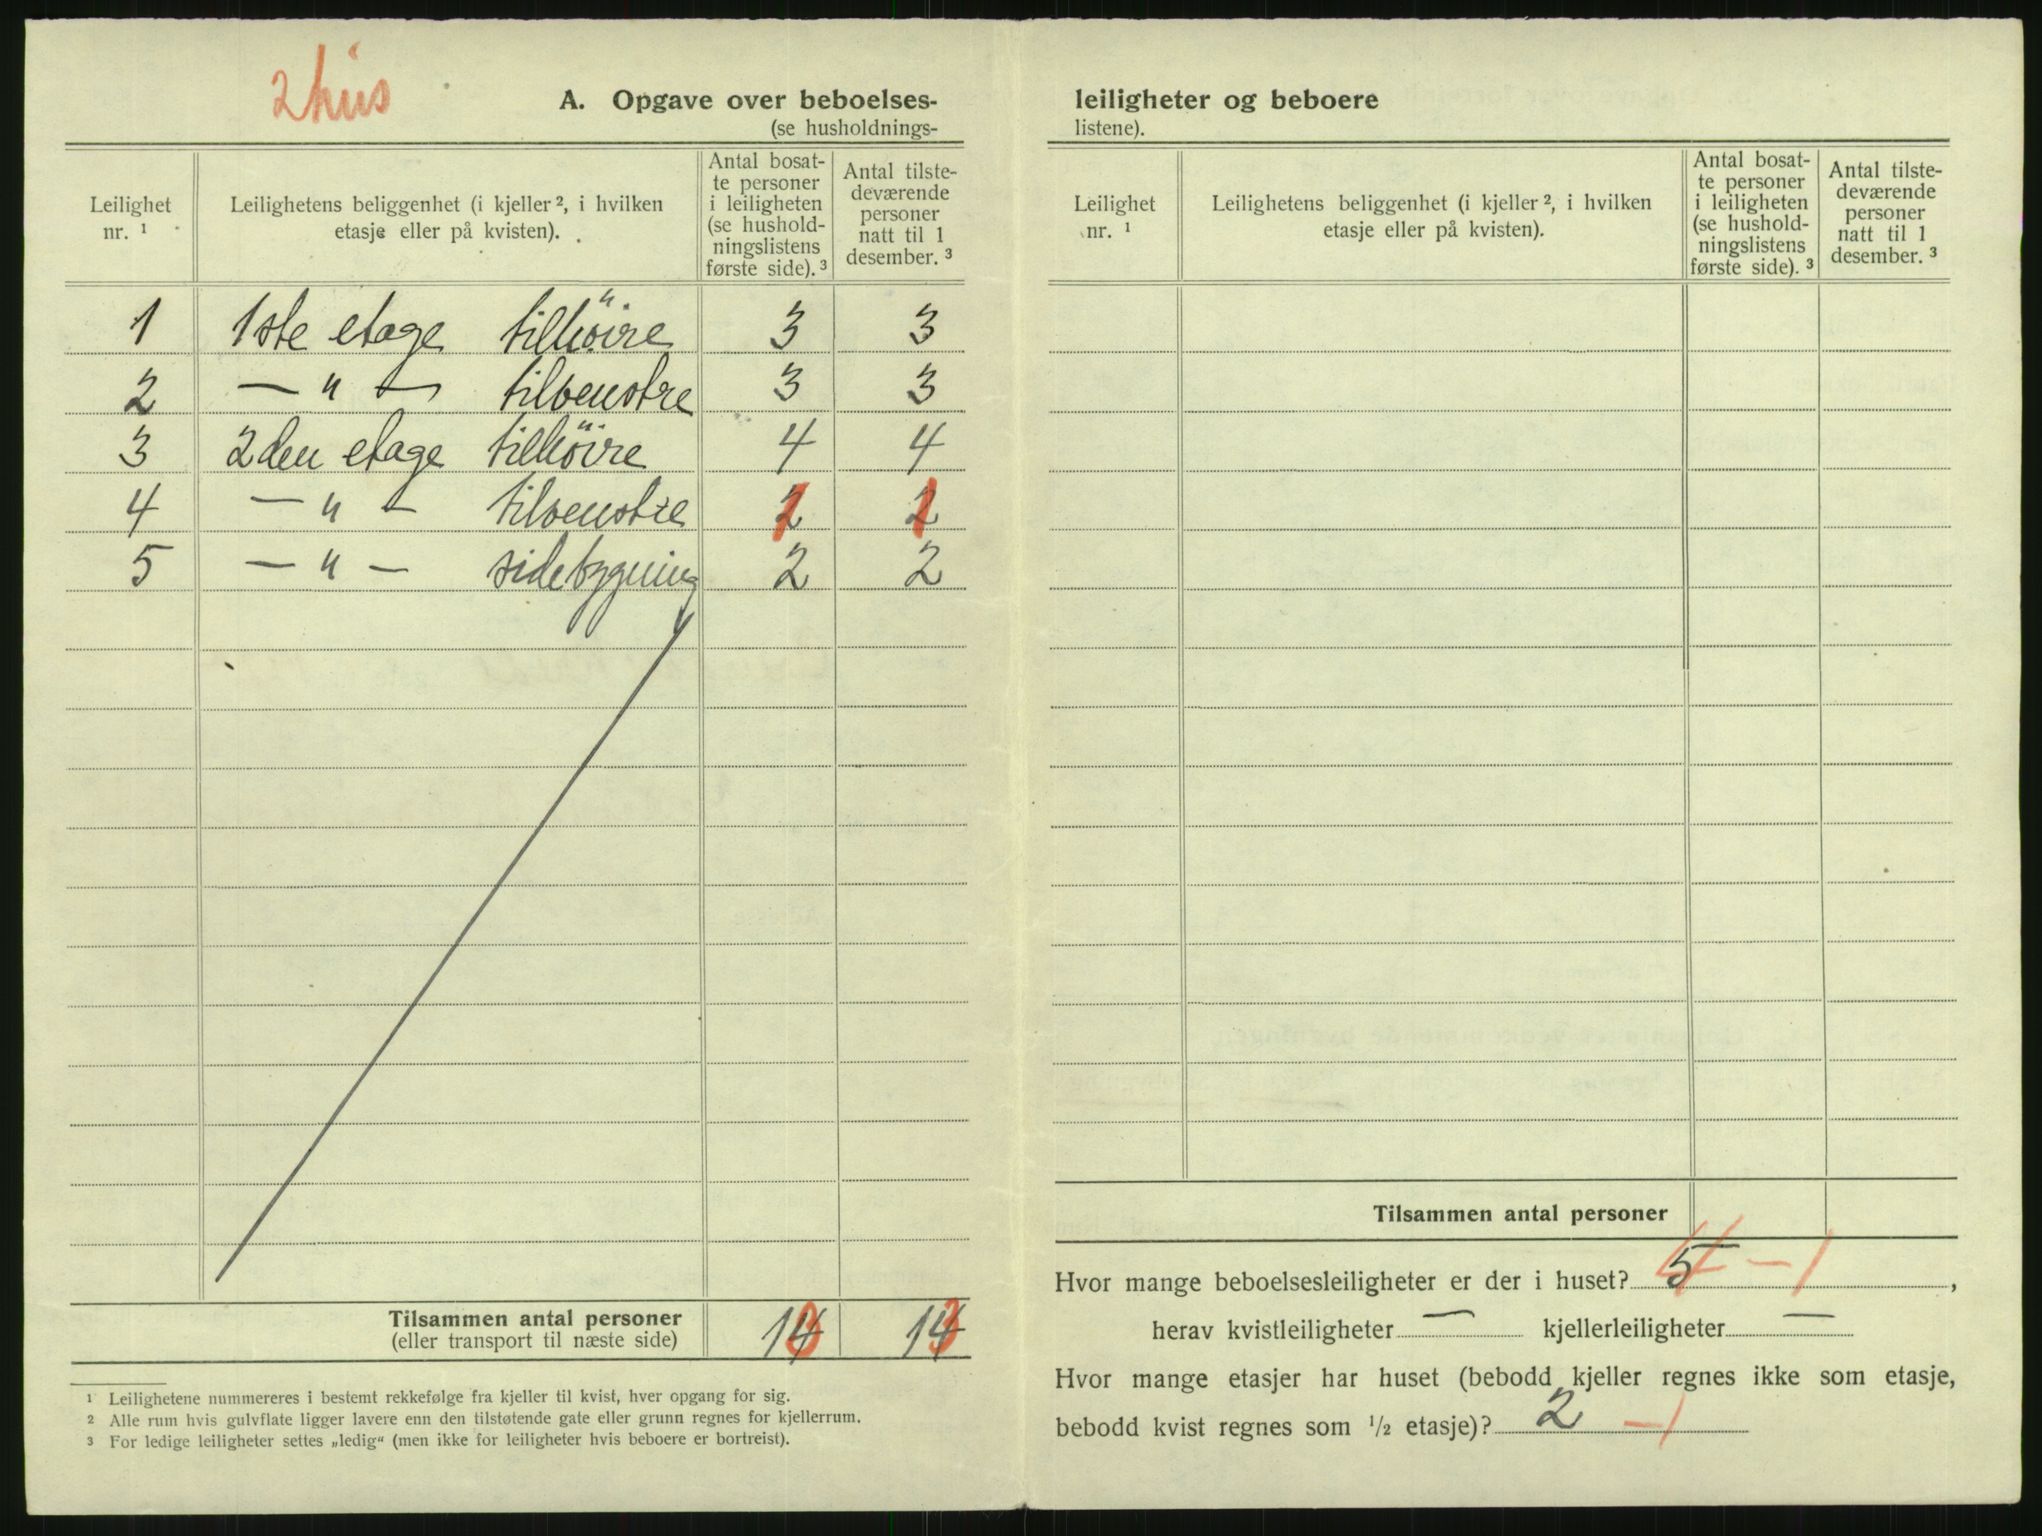 2 hus
A. Opgave over beboelses-
(se husholdnings-
Leilighet nr. ¹
Leilighetens beliggenhet (i kjeller ², i hvilken etasje eller på kvisten).
Antal bosat-
te personer
i leiligheten
(se hushold-
ningslistens
første side). ³
Antal tilste-
deværende
personer
natt til 1
desember. ³
1 1ste etage tilhöire 3 3
2 — " — tilvenstre 3 3
3 2den etage tilhöire 4 4
4 — " — tilvenstre 2 1 2 1
5 — " — sidebygning 2 2
Tilsammen antal personer 14 3 14 3
(eller transport til næste side)
¹ Leilighetene nummereres i bestemt rekkefølge fra kjeller til kvist, hver opgang for sig.
² Alle rum hvis gulvflate ligger lavere enn den tilstøtende gate eller grunn regnes for kjellerrum.
³ For ledige leiligheter settes „ledig“ (men ikke for leiligheter hvis beboere er bortreist).
leiligheter og beboere
listene).
Leilighet nr. ¹
Leilighetens beliggenhet (i kjeller ², i hvilken etasje eller på kvisten).
Antal bosat-
te personer
i leiligheten
(se hushold-
ningslistens
første side). ³
Antal tilste-
deværende
personer
natt til 1
desember. ³
Tilsammen antal personer
Hvor mange beboelsesleiligheter er der i huset? 5 4 — 1,
herav kvistleiligheter — kjellerleiligheter —
Hvor mange etasjer har huset (bebodd kjeller regnes ikke som etasje,
bebodd kvist regnes som ½ etasje)? 2 — 1